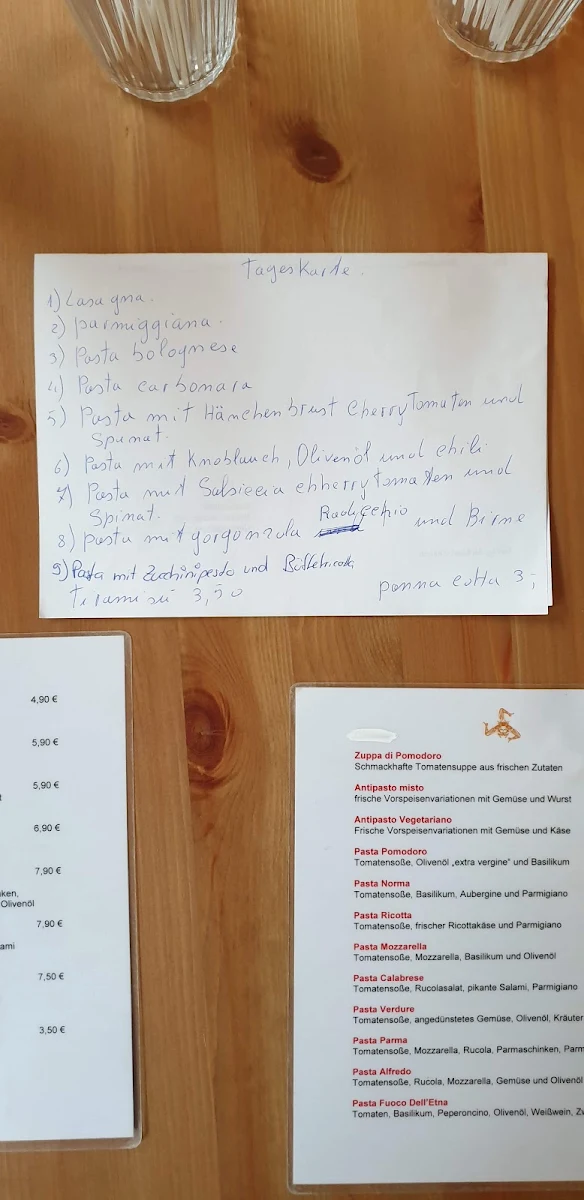 Tageskarte.
1) Lasagna.
2) parmiggiana.
3) Pasta bolognese
4) Pasta carbonara
5) Pasta mit Hänchenbrust Cherrytomaten und
Spinat.
6) Pasta mit Knoblauch, Olivenöl und chili
7) Pasta mit Salsiccia chherrytomaten und
Spinat.
8) pasta mit gorgonzola Radicchio und Birne
9) Pasta mit Zucchinipesto und
Tiramisu 3,50
panna cotta 3,-
4,90 €
5,90 €
5,90 €
t
6,90 €
7,90 €
ken,
Olivenöl
7,90 €
ami
7,50 €
3,50 €
Zuppa di Pomodoro
Schmackhafte Tomatensuppe aus frischen Zutaten
Antipasto misto
frische Vorspeisenvariationen mit Gemüse und Wurst
Antipasto Vegetariano
Frische Vorspeisenvariationen mit Gemüse und Käse
Pasta Pomodoro
Tomatensoße, Olivenöl „extra vergine" und Basilikum
Pasta Norma
Tomatensoße, Basilikum, Aubergine und Parmigiano
Pasta Ricotta
Tomatensoße, frischer Ricottakäse und Parmigiano
Pasta Mozzarella
Tomatensoße, Mozzarella, Basilikum und Olivenöl
Pasta Calabrese
Tomatensoße, Rucolasalat, pikante Salami, Parmigiano
Pasta Verdure
Tomatensoße, angedünstetes Gemüse, Olivenöl, Kräuter
Pasta Parma
Tomatensoße, Mozzarella, Rucola, Parmaschinken, Parm
Pasta Alfredo
Tomatensoße, Rucola, Mozzarella, Gemüse und Olivenöl
Pasta Fuoco Dell'Etna
Tomaten, Basilikum, Peperoncino, Olivenöl, Weißwein, Zw